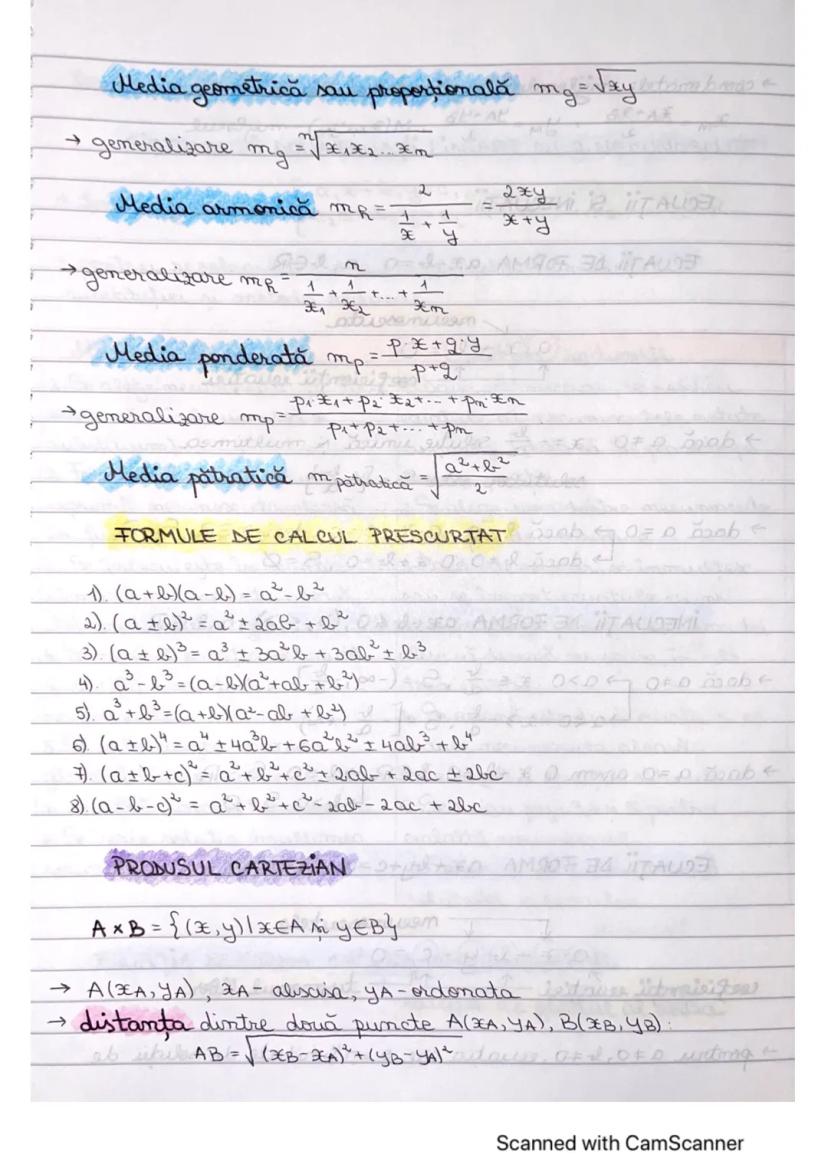 Media geometrică sau proporțională m_g = √xy
→ generalizare m_g = ⁿ√x₁x₂...xₙ
Media armonică m_h = 2 / (1/x + 1/y) = 2xy / (x+y)
→ generalizare m_h = n / (1/x₁ + 1/x₂ + ... + 1/xₙ)
Media ponderată m_p = (p·x + q·y) / (p+q)
→ generalizare m_p = (p₁·x₁ + p₂·x₂ + ... + pₙ·xₙ) / (p₁ + p₂ + ... + pₙ)
Media pătratică m pătratică = √((a² + b²) / 2)
FORMULE DE CALCUL PRESCURTAT
1). (a+b)(a-b) = a² - b²
2). (a ± b)² = a² ± 2ab + b²
3). (a ± b)³ = a³ ± 3a²b + 3ab² ± b³
4). a³ - b³ = (a-b)(a² + ab + b²)
5). a³ + b³ = (a+b)(a² - ab + b²)
6). (a ± b)⁴ = a⁴ ± 4a³b + 6a²b² ± 4ab³ + b⁴
7). (a ± b + c)² = a² + b² + c² ± 2ab + 2ac ± 2bc
8). (a - b - c)² = a² + b² + c² - 2ab - 2ac + 2bc
PRODUSUL CARTEZIAN
A × B = {(x, y) | x∈A și y∈B}
→ A(x_A, y_A), x_A - abscisa, y_A - ordonata
→ distanța dintre două puncte A(x_A, y_A), B(x_B, y_B):
AB = √((x_B - x_A)² + (y_B - y_A)²)
Scanned with CamScanner